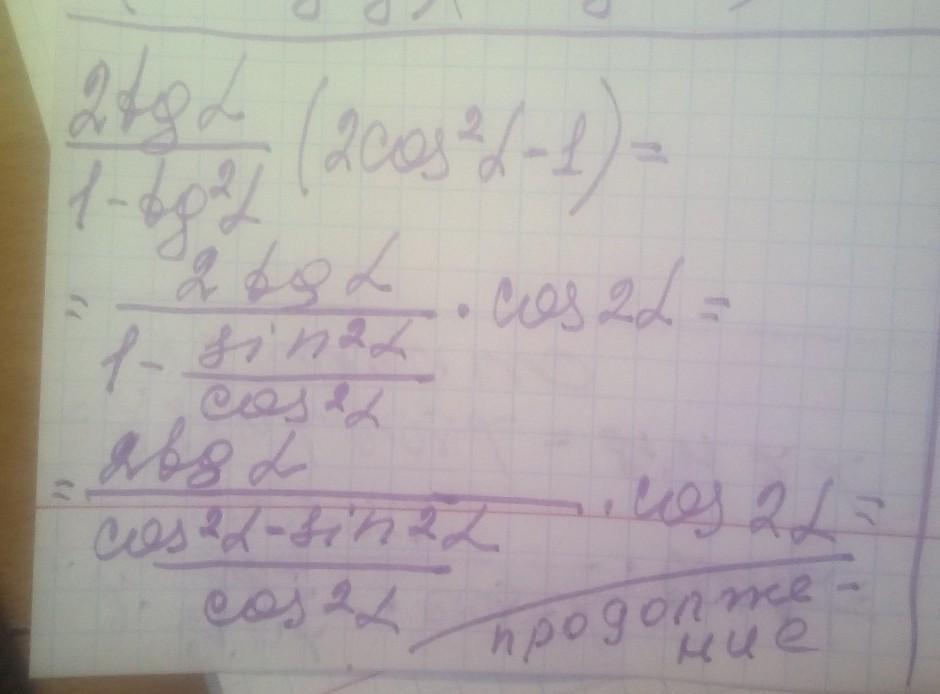 2tgα
/(1-tg²α) (2cos²α-1) =
= 2tgα
/(1 - sin²α/cos²α) · cos2α =
= 2tgα
/((cos²α-sin²α)/cos²α) · cos2α =
продолже-
ние